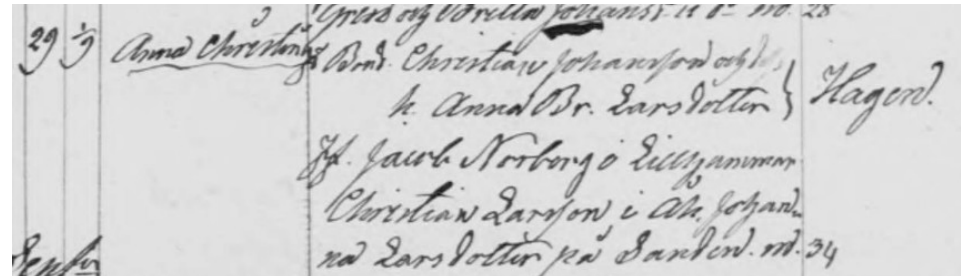 och Britta Johansd. 28
29 1/9 Anna Christina Bond. Christian Johansson och
h. Anna Br. Larsdotter } Hagen.
Ff. Jacob Norberg o Lillhammar
Christian Larsson i Åk. Johan-
na Larsdotter på Sanden. 34